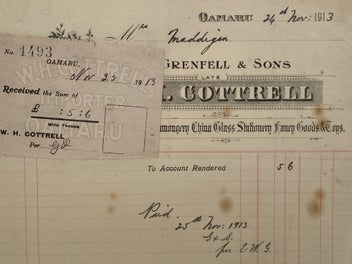 OAMARU 24th Nov: 1913
Maddigan
GRENFELL & SONS
LATE
H. COTTRELL
Ironmongery China Glass Stationery Fancy Goods & Toys.
To Account Rendered 5 6
Paid
25th Nov. 1913
G & S
per E.W.G.
No. 1493
OAMARU,
Nov 25 1913
W.H. COTTRELL
IMPORTER
OAMARU
Received the Sum of
£ : 5 : 6
WITH THANKS
W. H. COTTRELL
Per